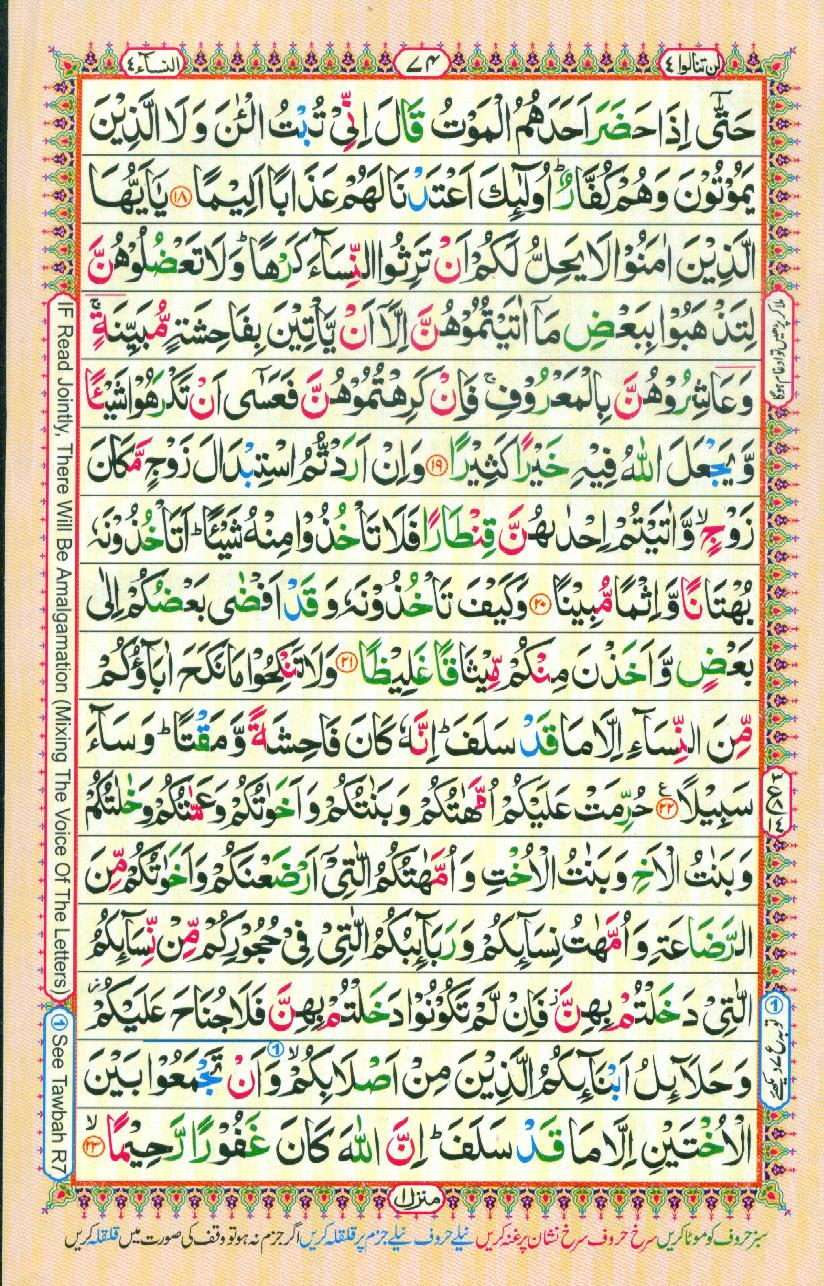 لن تنالوا ٤
٧٤
النسآء ٤
حَتّٰۤى اِذَا حَضَرَ اَحَدَهُمُ الْمَوْتُ قَالَ اِنِّیْ تُبْتُ الْـٰٔنَ وَ لَا الَّذِیْنَ
یَمُوْتُوْنَ وَ هُمْ كُفَّارٌ ؕ اُولٰٓىِٕكَ اَعْتَدْنَا لَهُمْ عَذَابًا اَلِیْمًا ﴿۱۸﴾ یٰۤاَیُّهَا
الَّذِیْنَ اٰمَنُوْا لَا یَحِلُّ لَكُمْ اَنْ تَرِثُوا النِّسَآءَ كَرْهًا ؕ وَ لَا تَعْضُلُوْهُنَّ
لِتَذْهَبُوْا بِبَعْضِ مَاۤ اٰتَیْتُمُوْهُنَّ اِلَّاۤ اَنْ یَّاْتِیْنَ بِفَاحِشَةٍ مُّبَیِّنَةٍ ۚ
وَ عَاشِرُوْهُنَّ بِالْمَعْرُوْفِ ۚ فَاِنْ كَرِهْتُمُوْهُنَّ فَعَسٰۤى اَنْ تَكْرَهُوْا شَیْـًٔا
وَّ یَجْعَلَ اللّٰهُ فِیْهِ خَیْرًا كَثِیْرًا ﴿۱۹﴾ وَ اِنْ اَرَدْتُّمُ اسْتِبْدَالَ زَوْجٍ مَّكَانَ
زَوْجٍ ۙ وَّ اٰتَیْتُمْ اِحْدٰىهُنَّ قِنْطَارًا فَلَا تَاْخُذُوْا مِنْهُ شَیْـًٔا ؕ اَتَاْخُذُوْنَهٗ
بُهْتَانًا وَّ اِثْمًا مُّبِیْنًا ﴿۲۰﴾ وَ كَیْفَ تَاْخُذُوْنَهٗ وَ قَدْ اَفْضٰى بَعْضُكُمْ اِلٰى
بَعْضٍ وَّ اَخَذْنَ مِنْكُمْ مِّیْثَاقًا غَلِیْظًا ﴿۲۱﴾ وَ لَا تَنْكِحُوْا مَا نَكَحَ اٰبَآؤُكُمْ
مِّنَ النِّسَآءِ اِلَّا مَا قَدْ سَلَفَ ؕ اِنَّهٗ كَانَ فَاحِشَةً وَّ مَقْتًا ؕ وَ سَآءَ
سَبِیْلًا ﴿۲۲﴾ ع حُرِّمَتْ عَلَیْكُمْ اُمَّهٰتُكُمْ وَ بَنٰتُكُمْ وَ اَخَوٰتُكُمْ وَ عَمّٰتُكُمْ وَ خٰلٰتُكُمْ
وَ بَنٰتُ الْاَخِ وَ بَنٰتُ الْاُخْتِ وَ اُمَّهٰتُكُمُ الّٰتِیْۤ اَرْضَعْنَكُمْ وَ اَخَوٰتُكُمْ مِّنَ
الرَّضَاعَةِ وَ اُمَّهٰتُ نِسَآىِٕكُمْ وَ رَبَآىِٕبُكُمُ الّٰتِیْ فِیْ حُجُوْرِكُمْ مِّنْ نِّسَآىِٕكُمُ
الّٰتِیْ دَخَلْتُمْ بِهِنَّ ؗ فَاِنْ لَّمْ تَكُوْنُوْا دَخَلْتُمْ بِهِنَّ فَلَا جُنَاحَ عَلَیْكُمْ ؗ
وَ حَلَآىِٕلُ اَبْنَآىِٕكُمُ الَّذِیْنَ مِنْ اَصْلَابِكُمْ ۙ ① وَ اَنْ تَجْمَعُوْا بَیْنَ
الْاُخْتَیْنِ اِلَّا مَا قَدْ سَلَفَ ؕ اِنَّ اللّٰهَ كَانَ غَفُوْرًا رَّحِیْمًا ﴿۲۳﴾ ۙ
منزل ۱
سبز حروف کو موٹا کریں سرخ حروف سرخ نشان پر غنہ کریں نیلے حروف نیلے جزم پر قلقلہ کریں اگر جزم نہ ہو تو وقف کی صورت میں قلقلہ کریں
IF Read Jointly, There Will Be Amalgamation (Mixing The Voice Of The Letters)
① See Tawbah R7